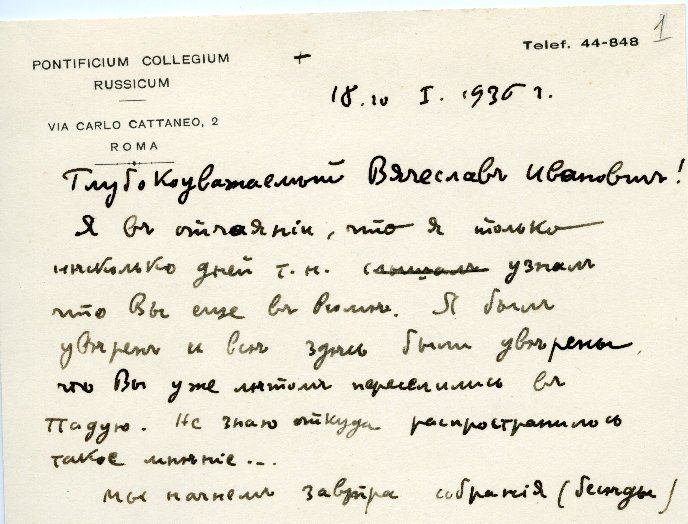 PONTIFICIUM COLLEGIUM
RUSSICUM
VIA CARLO CATTANEO, 2
ROMA
Telef. 44-848
1
+
18.го I. 1936 г.
Глубокоуважаемый Вячеславъ Ивановичъ!
Я въ отчаяніи, что я только
нѣсколько дней т.н. слышалъ узналъ
что Вы еще въ Римѣ. Я былъ
увѣренъ и всѣ здѣсь были увѣрены,
что Вы уже лѣтомъ переселились въ
Падую. Не знаю откуда распространилось
такое мнѣніе...
Мы начнемъ завтра собранія (бесѣды)